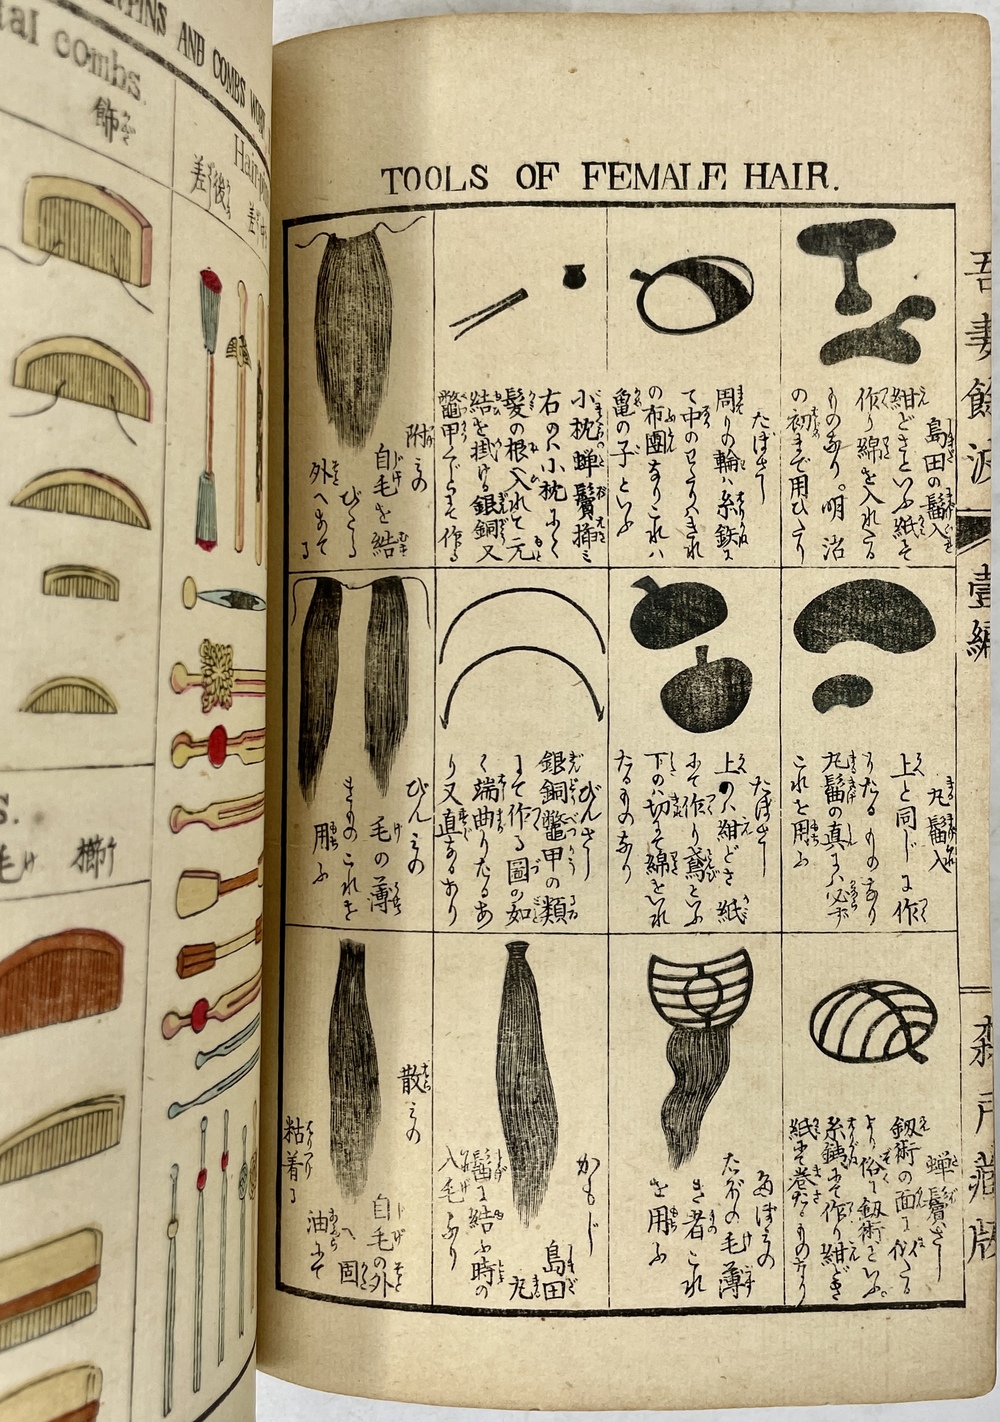 RPINS AND COMBS WORN
tal combs.
飾
Hairpin
後差
中差
毛
櫛
TOOLS OF FEMALE HAIR.
島田の髷入
紺どさといふ紙で
作り綿を入れたる
ものあり。明治
の初まで用ひたり
たぼさし
周りの輪ハ糸鉄に
て中のせとりハきれ
の布團なりこれハ
亀の子といふ
小枕蝉鬢挿
右の八小枕
髪の根へ入れて元
結を掛ける銀銅又
鼈甲などにて作る
附
自毛を結
びたる
外へあて
る
丸髷入
上と同じに作
りたるものあり
丸髷の真にハ必ず
これを用ふ
たぼさし
上のハ紺どさ紙
にて作り鳶といふ
下のハ切にて綿をいれ
たるものなり
びんさし
銀銅鼈甲の類
にて作る圖の如
く端曲りたるあ
り又直なるあり
びんみの
毛の薄
きものこれを
用ふ
蝉鬢さし
劔術の面に似たる
より俗に劔術といふ。
糸鉄にて作り紺どさ
紙にて巻たるものなり
たぼみの
たぼの毛薄
き者これ
を用ふ
かもじ
島田
丸
髷に結ふ時の
入毛なり
散みの
自毛の外
へ固
油にて
粘着る
吾妻餘波
壹編
森戸藏版